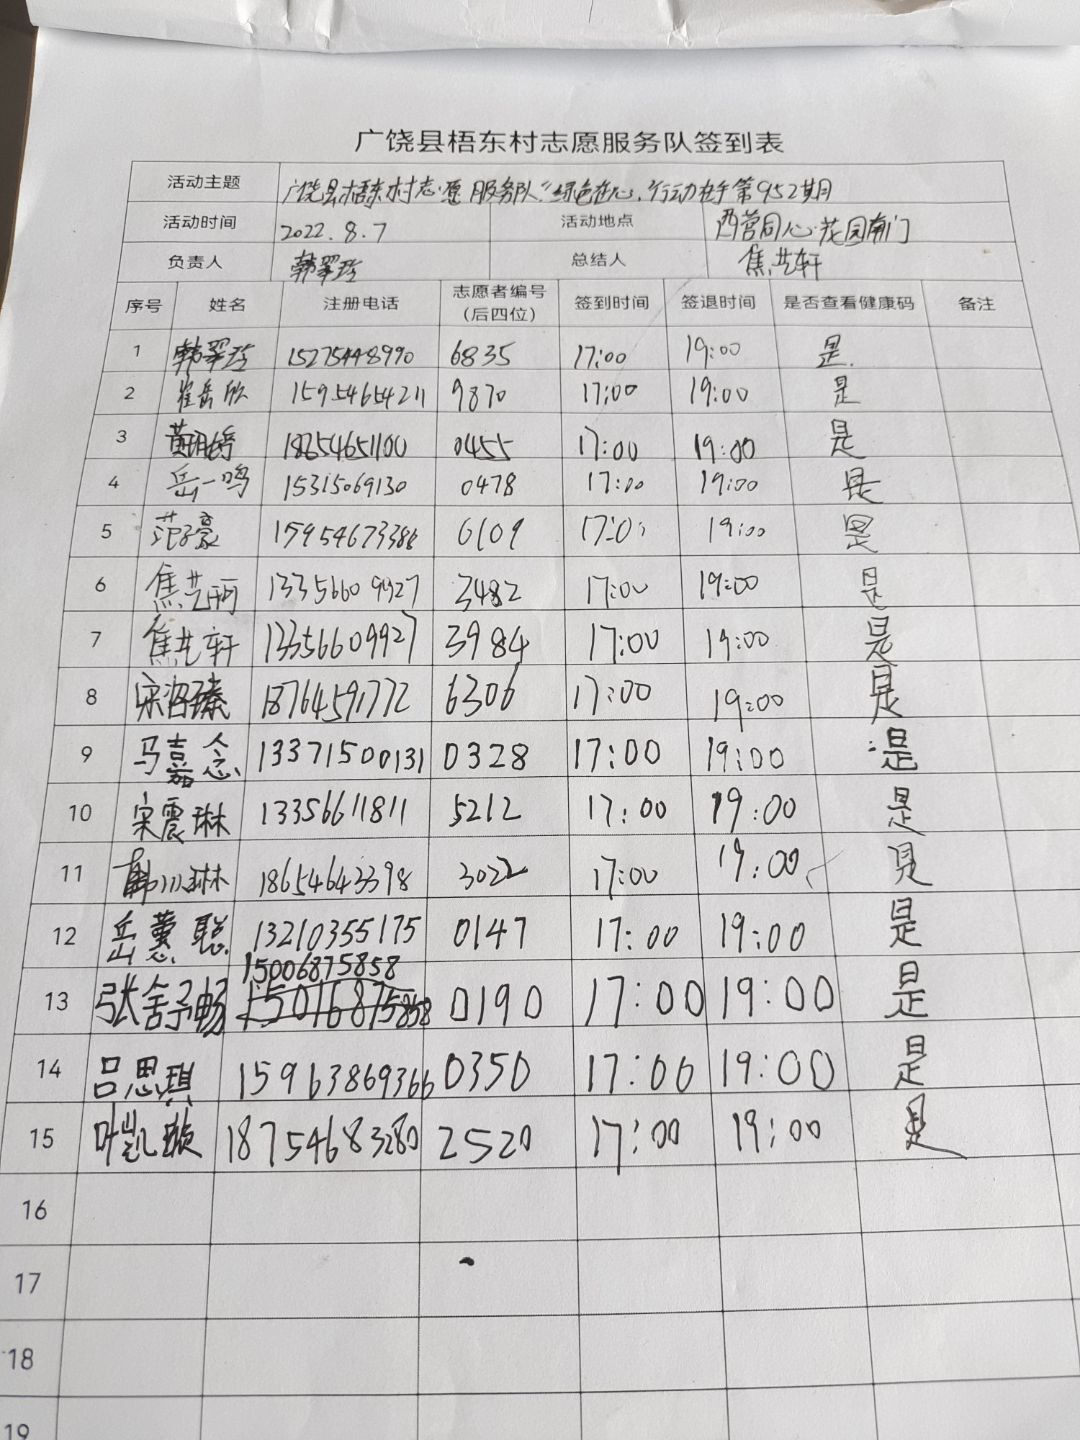 广饶县梧东村志愿服务队签到表
活动主题 广饶县梧东村志愿服务队"绿色在心,行动在手第952期
活动时间 2022.8.7 活动地点 西营同心花园南门
负责人 韩翠玲 总结人 焦艺轩
序号 姓名 注册电话 志愿者编号(后四位) 签到时间 签退时间 是否查看健康码 备注
1 韩翠玲 15275448990 6835 17:00 19:00 是.
2 崔岳欣 15954654211 9870 17:00 19:00 是
3 18654651100 0455 17:00 19:00 是
4 岳一鸣 15315069130 0478 17:00 19:00 是
5 范子豪 15954673386 6109 17:0 19:00 是
6 焦艺珂 13356609927 3482 17:00 19:00 是
7 焦艺轩 13356609927 3984 17:00 19:00 是
8 18764591772 6306 17:00 19:00 是
9 马嘉念 13371500131 0328 17:00 19:00 是
10 宋震琳 13356611811 5212 17:00 19:00 是
11 韩川琳 18654643398 3022 17:00 19:00 是
12 岳蕙聪 13210355175 0147 17:00 19:00 是
15006875858
13 张舒畅 15016875858 0190 17:00 19:00 是
14 吕思琪 15963869366 0350 17:00 19:00 是
15 叶凯璇 18754683280 2520 17:00 19:00 是
16
17
18
19